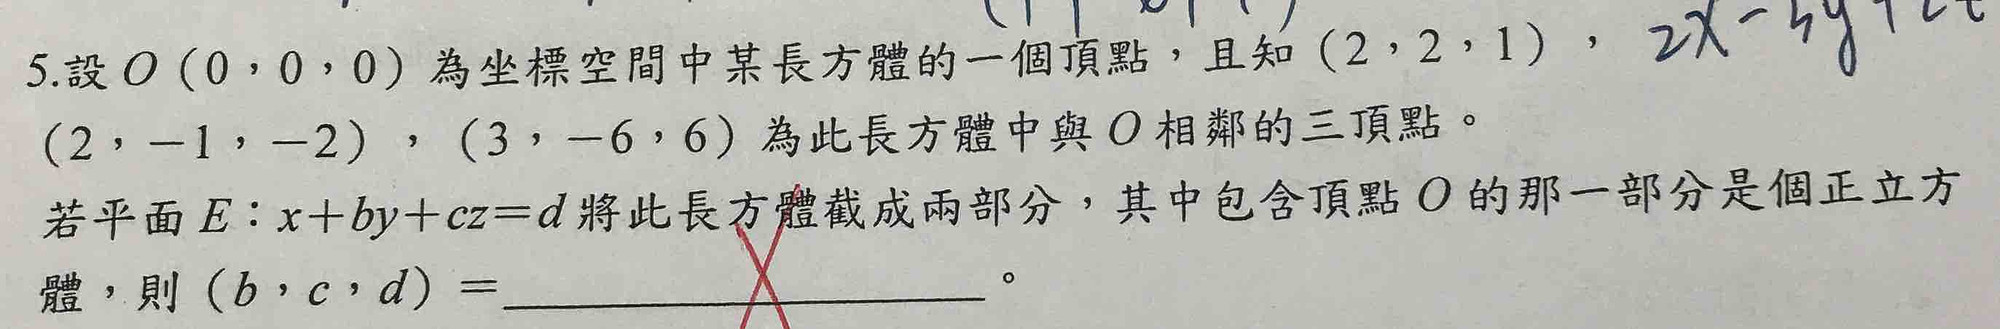 2x-5y+2z
5.設O（0，0，0）為坐標空間中某長方體的一個頂點，且知（2，2，1），
（2，－1，－2），（3，－6，6）為此長方體中與O相鄰的三頂點。
若平面E：x＋by＋cz＝d將此長方體截成兩部分，其中包含頂點O的那一部分是個正立方
體，則（b，c，d）＝＿＿＿＿＿＿＿＿＿＿。